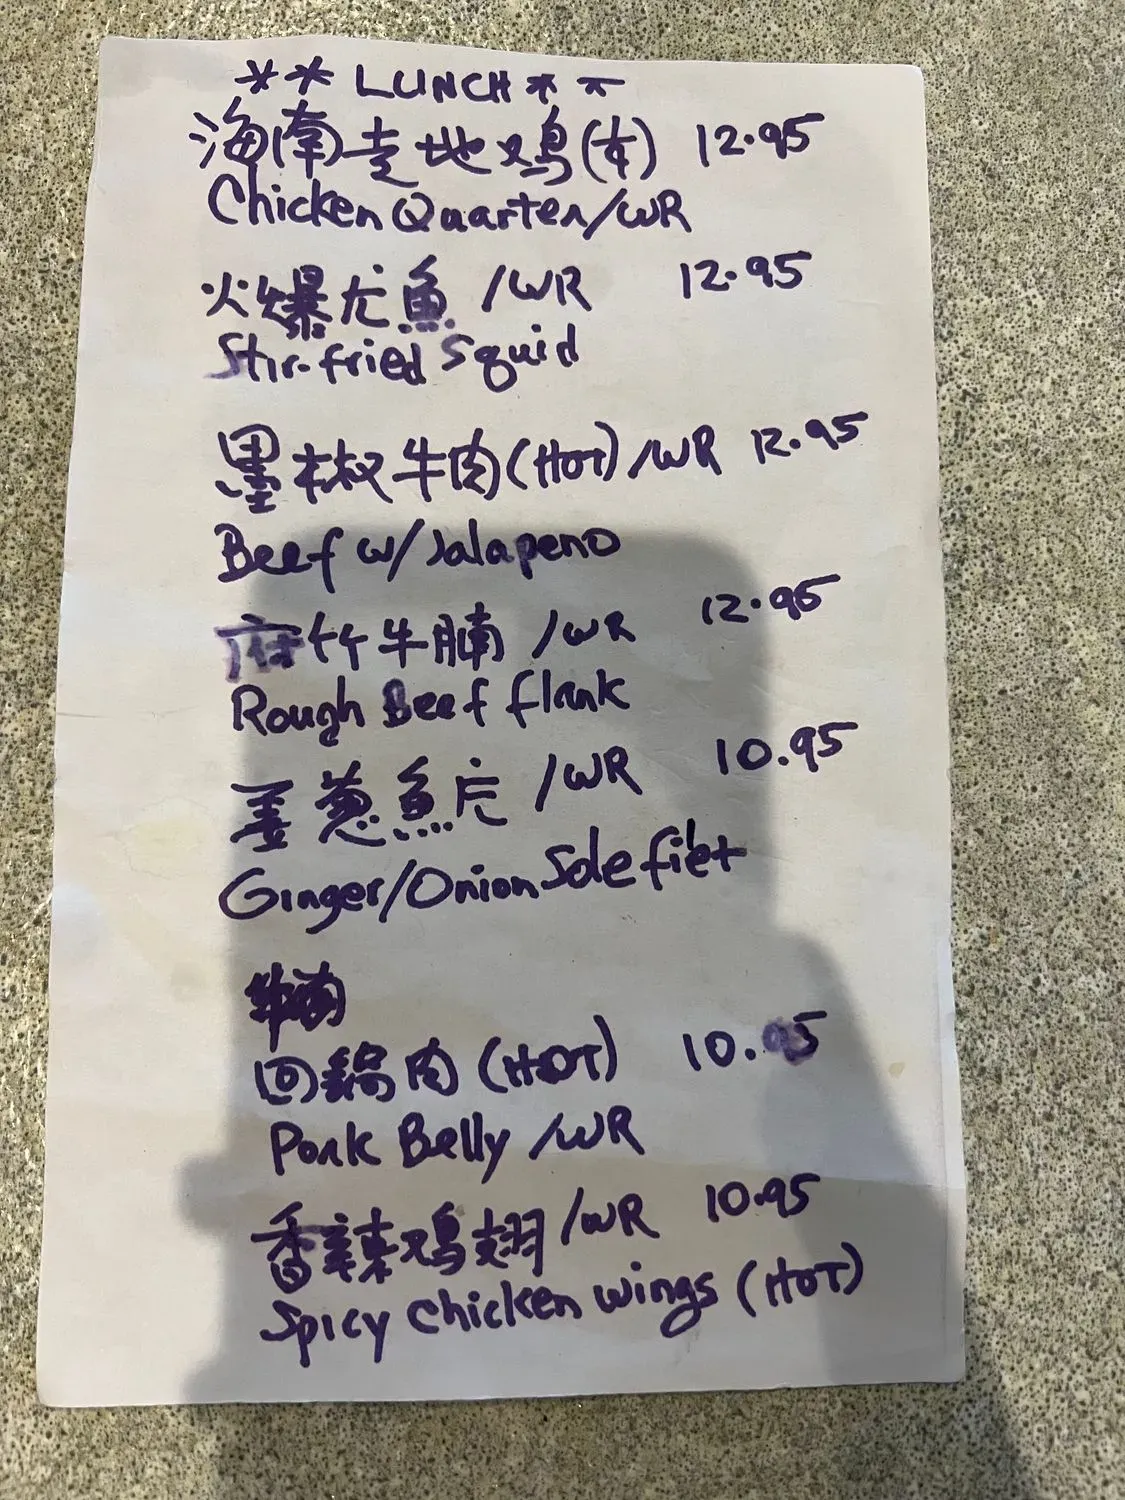 ** LUNCH **
海南走地鸡(¼) 12.95
Chicken Quarter/WR
火爆尤魚 /WR 12.95
Stir-fried Squid
墨椒牛肉(HOT)/WR 12.95
Beef w/Jalapeno
竹牛腩 /WR 12.95
Rough Beef flank
姜蔥魚片 /WR 10.95
Ginger/Onion Sole filet
回鍋肉 (HOT) 10.95
Pork Belly /WR
香辣鸡翅/WR 10.95
Spicy Chicken wings (HOT)